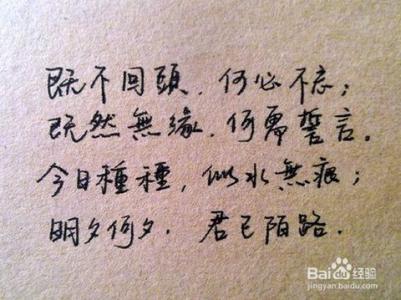 既不回頭，何必不忘；
既然無緣，何需誓言。
今日種種，似水無痕；
明夕何夕，君已陌路．
Baidu经验
jingyan.baidu.com